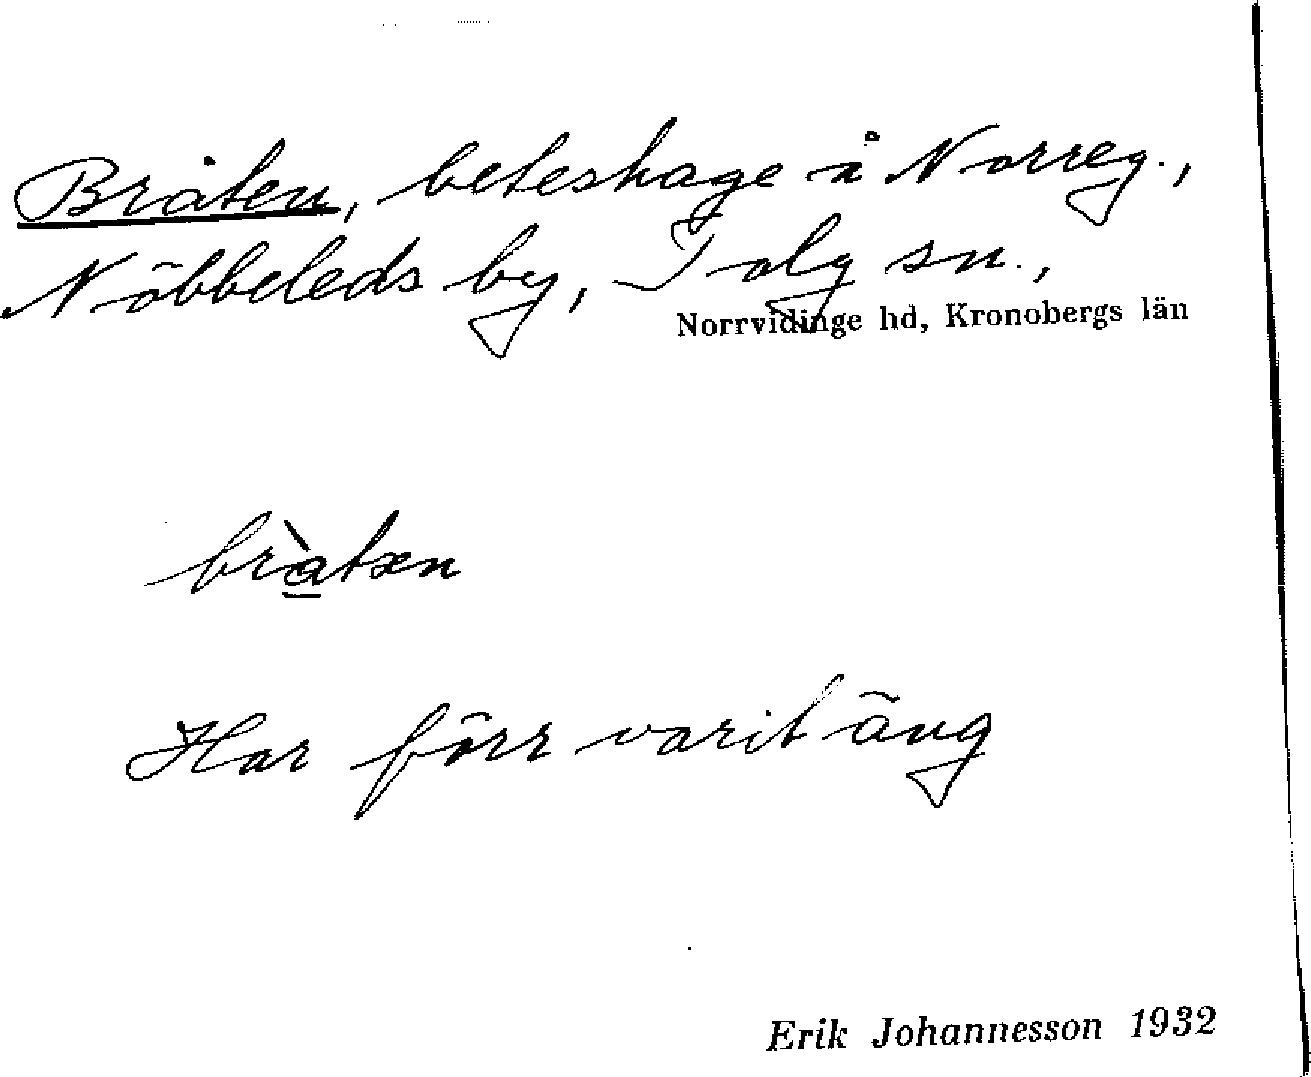 Bråten, beteshage å Norreg.,
Nöbbeleds by, Tolg sn.,
Norrvidinge hd, Kronobergs län
brà̱tæn
Har förr varit äng
Erik Johannesson 1932